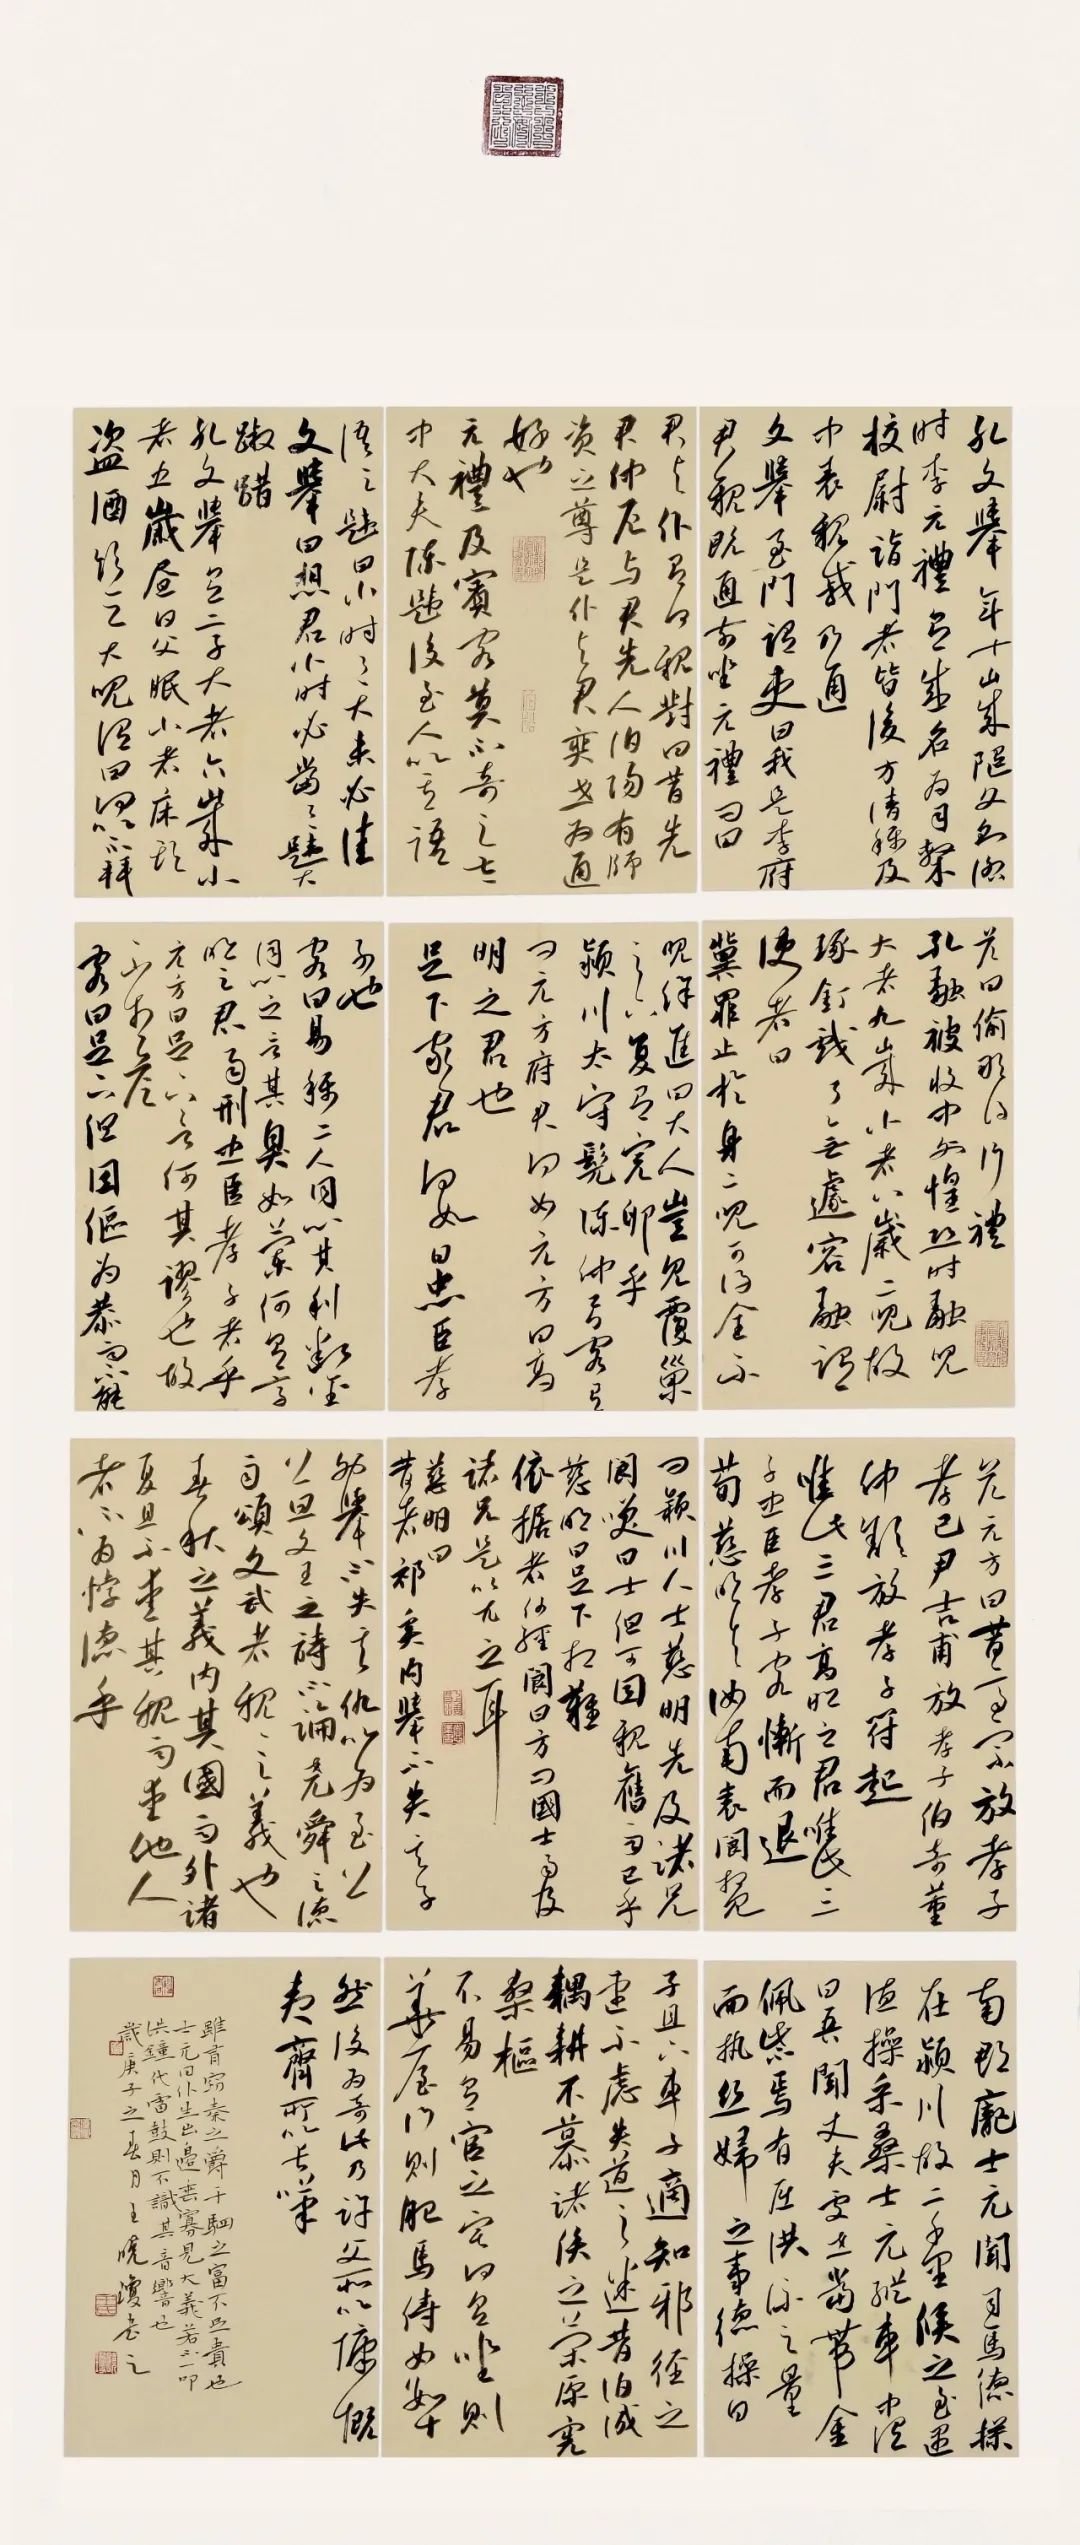 孔文舉年十歲隨父到洛
時李元禮有盛名為司隸
校尉詣門者皆後方清稱及
中表親戚乃通
文舉至門謂吏曰我是李府
君親既通前坐元禮問曰
君與僕有何親對曰昔先
君仲尼與君先人伯陽有師
資之尊是僕與君奕世為通
好也
元禮及賓客莫不奇之太
中大夫陳韙後至人以其語
語之韙曰小時了了大未必佳
文舉曰想君小時必當了了韙大
踧踖
孔文舉有二子大者六歲小
者五歲晝日父眠小者床頭
盜酒飲之大兒謂曰何以不拜
答曰偷那得行禮
孔融被收中外惶恐時融兒
大者九歲小者八歲二兒故
琢釘戲了無遽容融謂
使者曰
冀罪止於身二兒可得全不
兒徐進曰大人豈見覆巢
之下復有完卵乎
潁川太守髡陳仲弓客有
問元方府君何如元方曰高
明之君也
足下家君何如曰忠臣孝
子也
客曰易稱二人同心其利斷金
同心之言其臭如蘭何有高
明之君而刑忠臣孝子者乎
元方曰足下言何其謬也故
不相答
客曰足下但因傴為恭而不能
答元方曰昔高宗放孝子
孝己尹吉甫放孝子伯奇董
仲舒放孝子符起
唯此三君高明之君唯此三
子忠臣孝子客慚而退
荀慈明與汝南袁閬相見
問潁川人士慈明先及諸兄
閬笑曰士但可因親舊而已乎
慈明曰足下相難
依據者何經閬曰方問國士而及
諸兄是以尤之耳
慈明曰
昔者祁奚內舉不失其子
外舉不失其仇以為至公
公旦文王之詩不論堯舜之德
而頌文武者親親之義也
春秋之義內其國而外諸
夏且不愛其親而愛他人
者不為悖德乎
南郡龐士元聞司馬德操
在潁川故二千里候之至遇
德操采桑士元從車中謂
曰吾聞丈夫處世當帶金
佩紫焉有屈洪流之量
而執絲婦之事德操曰
子且下車子適知邪徑之
速不慮失道之迷昔伯成
耦耕不慕諸侯之榮原憲
桑樞
不易有官之宅何有坐則
華屋行則肥馬侍女數十
然後為奇此乃許父所以慷慨
夷齊所以長嘆
雖有竊秦之爵千駟之富不足貴也
士元曰僕生出邊垂寡見大義若不一叩
洪鐘伐雷鼓則不識其音響也
歲庚子之春月王曉瓊書之